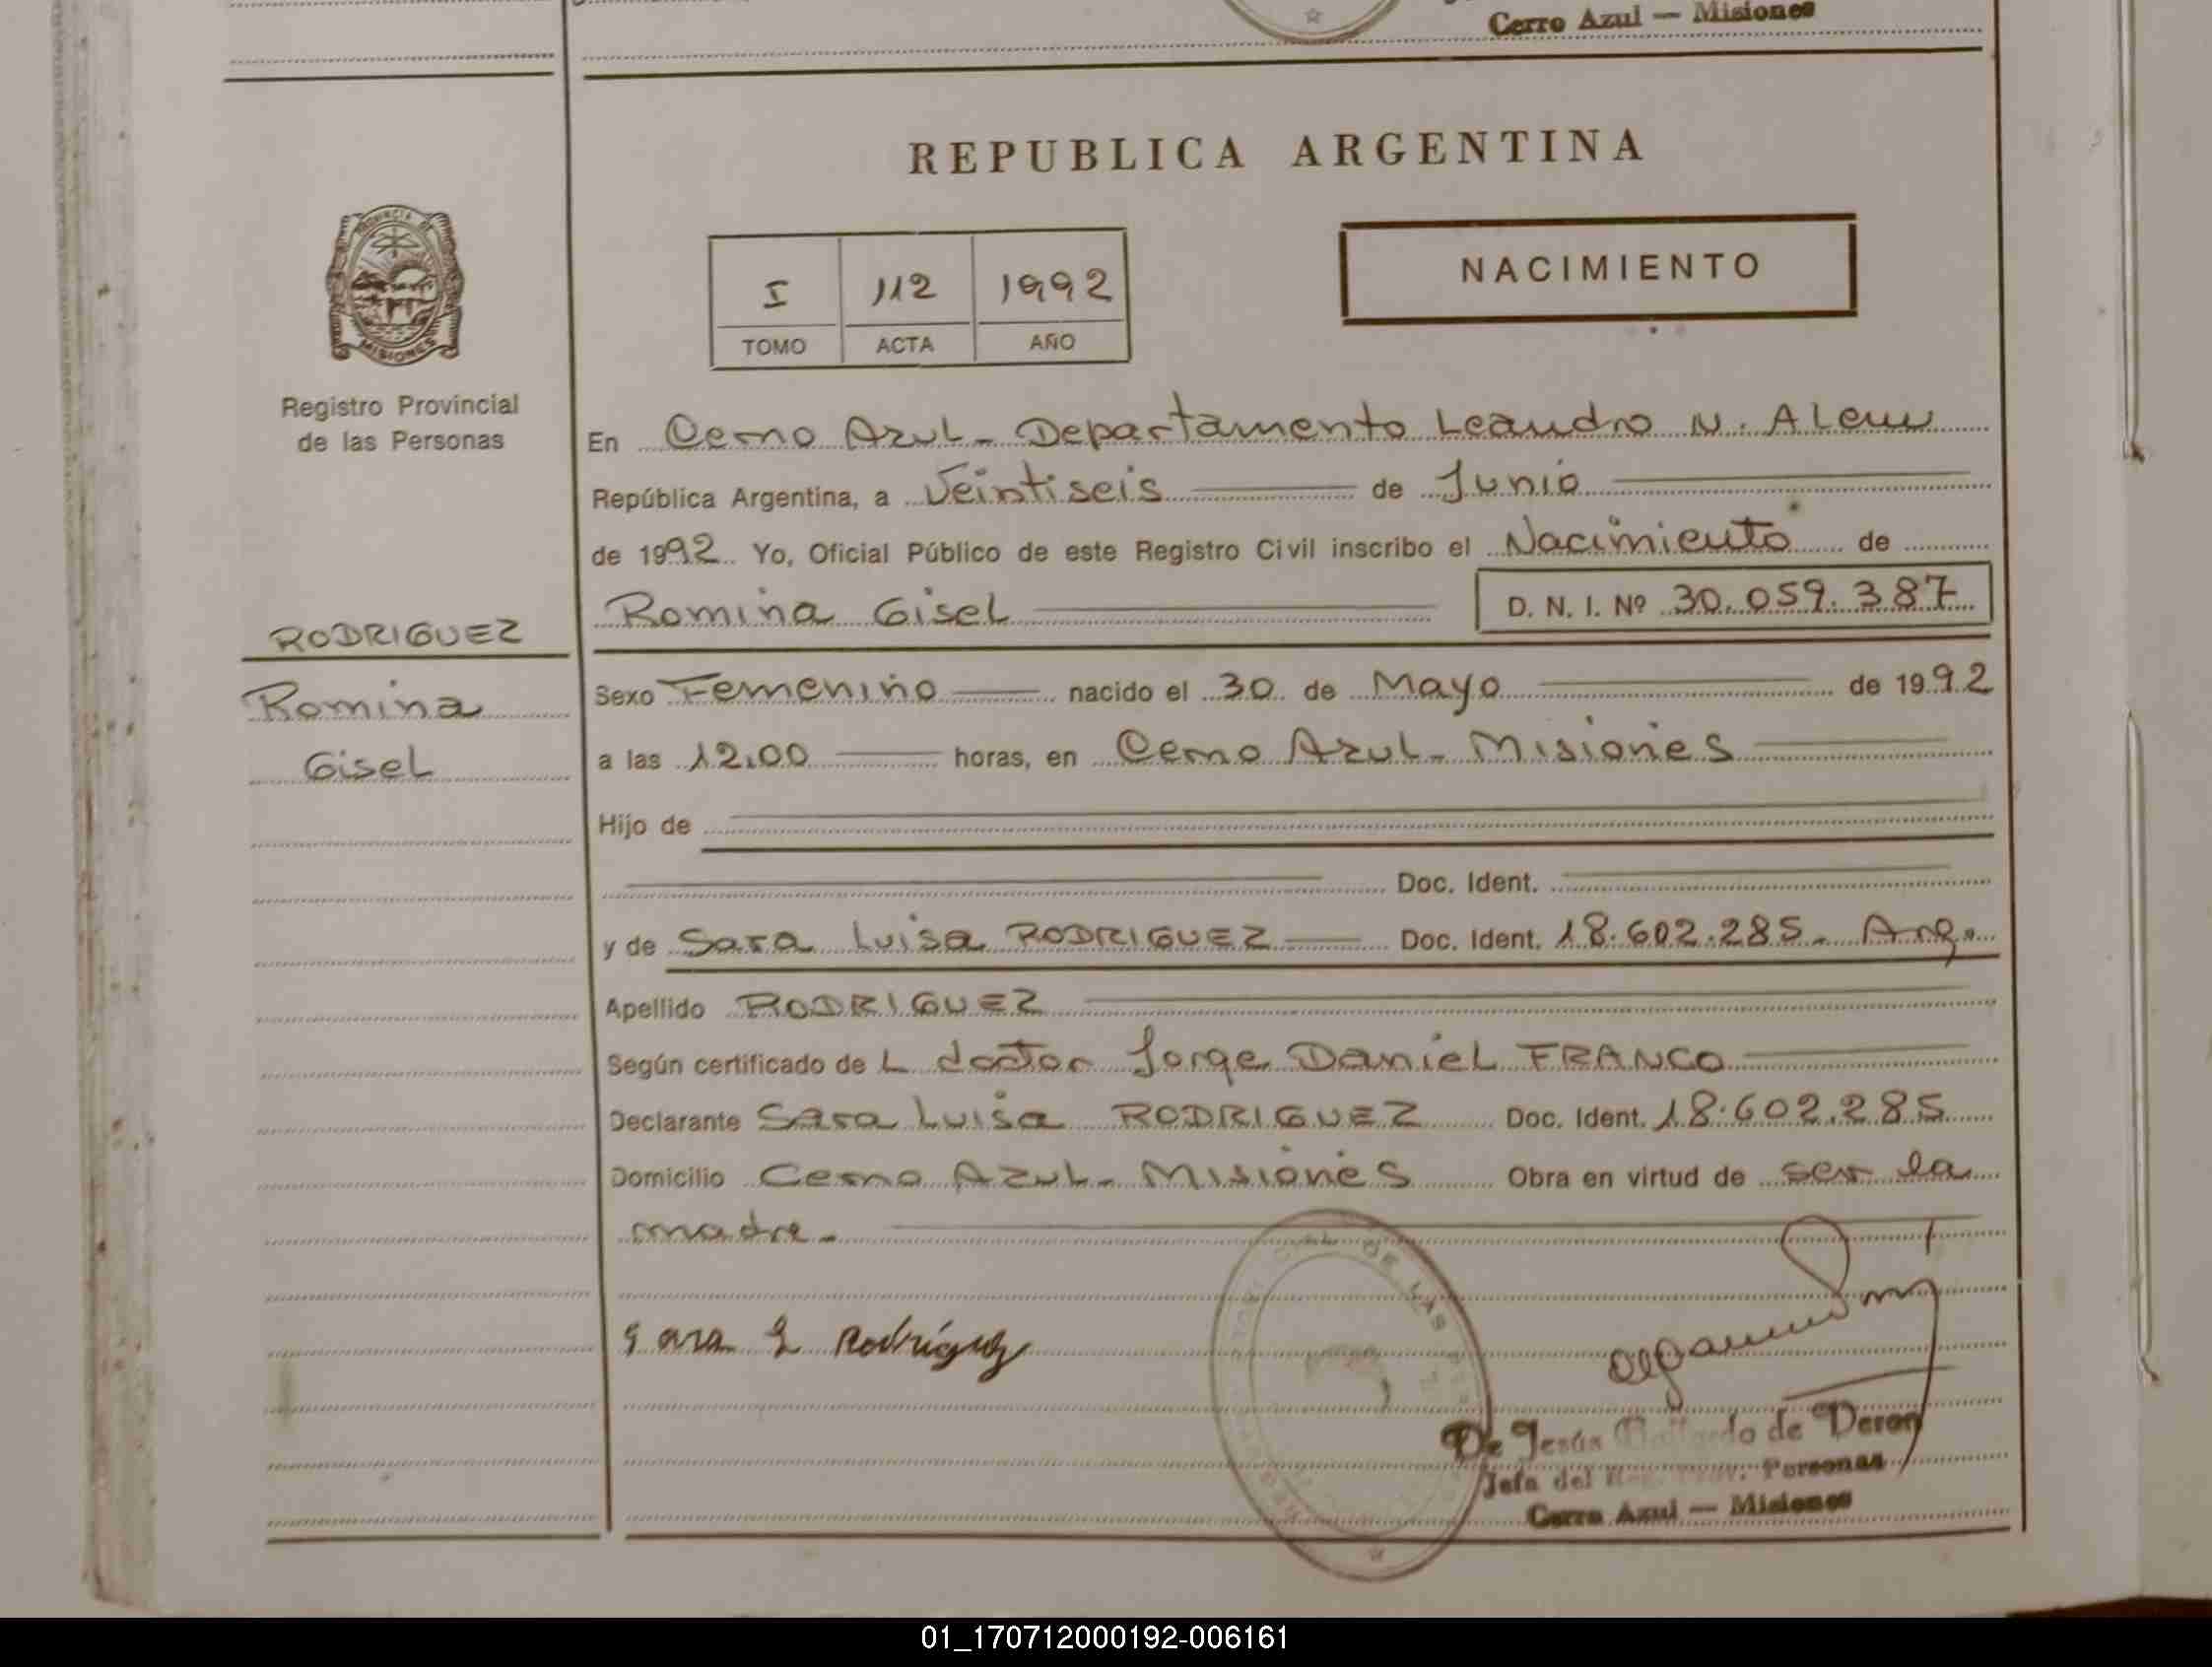 Cerro Azul — Misiones
REPUBLICA ARGENTINA
PROVINCIA
MISIONES
Registro Provincial
de las Personas
I 112 1992
TOMO ACTA AÑO
NACIMIENTO
En Cerro Azul - Departamento Leandro N. Alem
República Argentina, a Veintiseis de Junio
de 1992 Yo, Oficial Público de este Registro Civil inscribo el Nacimiento de
Romina Gisel D. N. I. Nº 30.059.387
RODRIGUEZ
Romina
Gisel
Sexo Femenino nacido el 30 de Mayo de 1992
a las 12,00 horas, en Cerro Azul - Misiones
Hijo de
Doc. Ident.
y de Sara Luisa RODRIGUEZ Doc. Ident. 18.602.285 - Arg.
Apellido RODRIGUEZ
Según certificado de L doctor Jorge Daniel FRANCO
Declarante Sara Luisa RODRIGUEZ Doc. Ident. 18.602.285
Domicilio Cerro Azul - Misiones Obra en virtud de ser la
madre -
Sara L Rodríguez
DE LAS
De Jesús de Deron
Jefa del Personas
Cerro Azul — Misiones
01_170712000192-006161